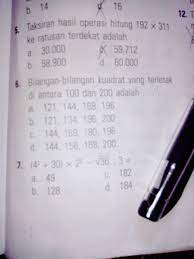 b. 14 d. 16
5. Taksiran hasil operasi hitung 192 × 311
ke ratusan terdekat adalah
a. 30.000 c. 59.712
b. 58.900 d. 60.000
6. Bilangan-bilangan kuadrat yang terletak
di antara 100 dan 200 adalah
a. 121, 144, 169, 196
b. 121, 134, 196, 200
c. 144, 169, 180, 196
d. 144, 156, 169, 200
7. (4² + 30) × 2² – √36 : 3 =
a. 49 c. 182
b. 128 d. 184
12.